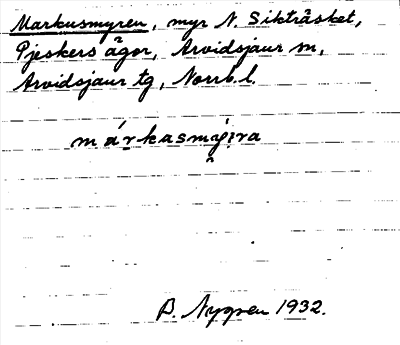 Markusmyren, myr N. Sikträsket,
Pjeskers ägor, Arvidsjaur sn,
Arvidsjaur tg, Norrb. l.
márkasmýra
B. Nygren 1932.